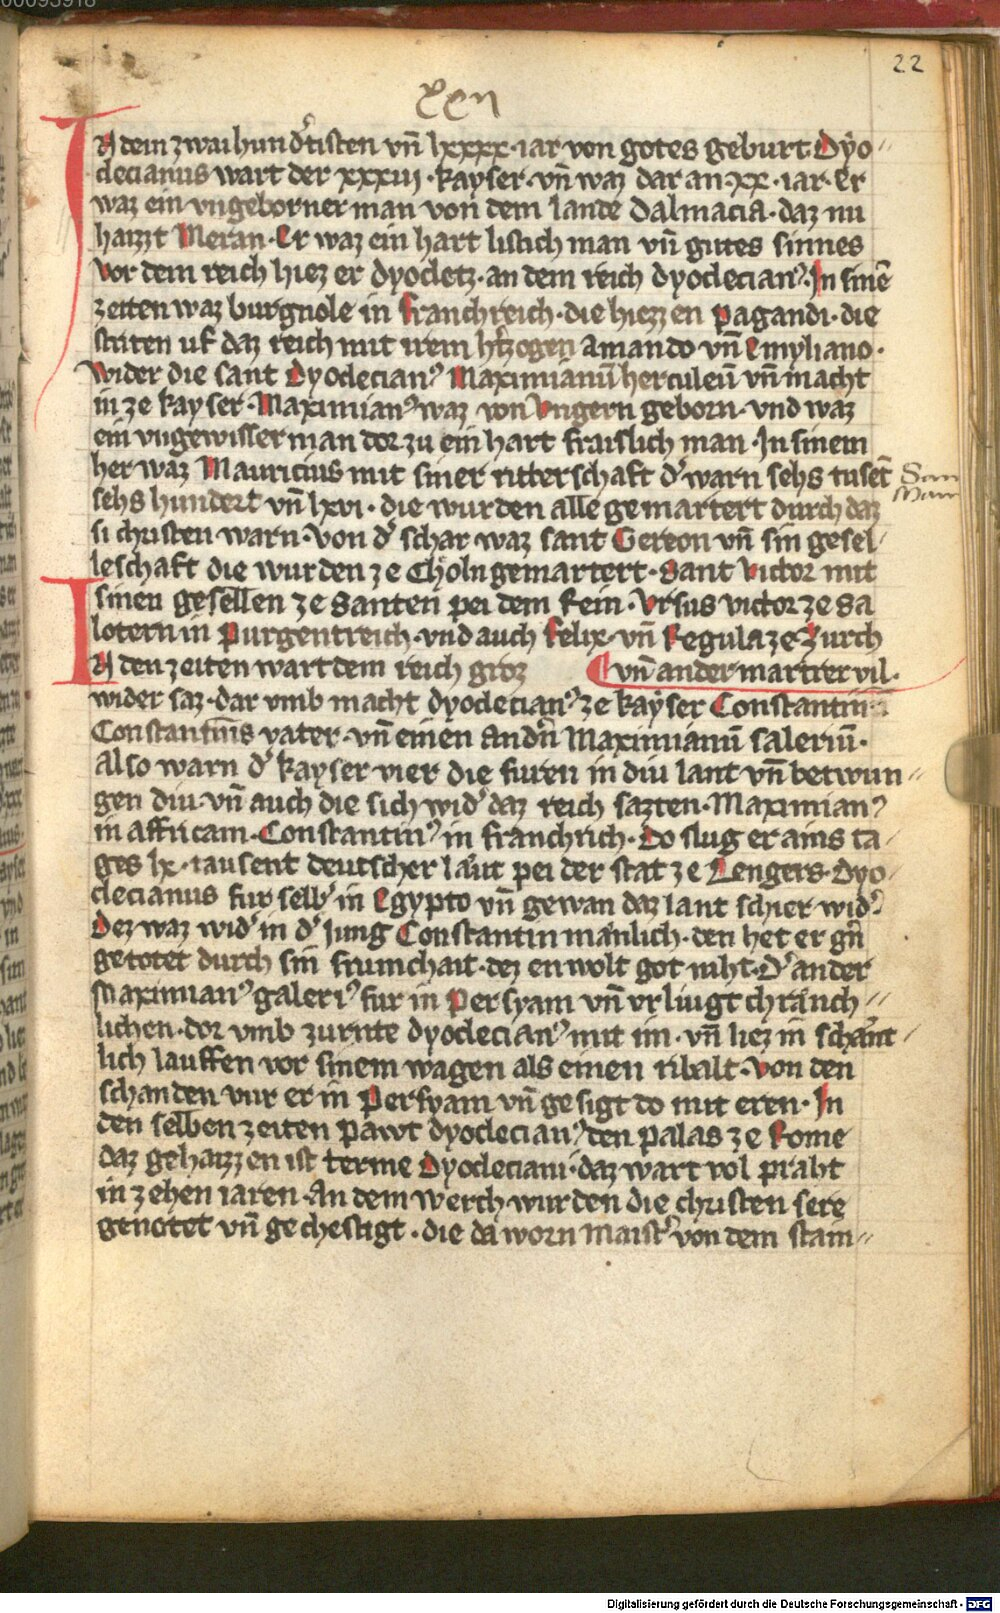 22
xxii
In dem zwaihund'tisten vn̄ lxxxx · iar von gotes geburt Dyo
clecianus wart der xxxiij · kayser · vn̄ waz dar an · xx · iar · Er
waz ein vngeborner man von dem lande dalmacia · daz nu
haizzt Meran · Er waz ein hart listich man vn̄ gutes sinnes
vor dem reich hiez er dyocletz · an dem reich dyoclecian⁹ · In sinē
zeiten waz burgnole in franchreich · die hiezzen pagandi · die
striten uf daz reich mit irem h'tzogen amando vn̄ Emyliano ·
wider die sant Dyoclecian⁹ Maximianū herculeū vn̄ macht
in ze kayser · Maximian⁹ waz von vngern geborn · vnd waz
ein vngewisser man dor zu ein hart fraislich man · In sinem
her waz Mauricius mit siner ritterschaft d' warn sehs tusēt
sehs hundert vn̄ lxvi · die wurden alle gemartert durch daz
si christen warn · Von d' schar waz sant Gereon vn̄ sin gesel
leschaft die wurden ze Chöln gemartert · Sant victor mit
sinen gesellen ze santen pei dem Rein · Vrsus victor ze sa
lotern in Purgentreich · vnd auch felix · vn̄ Regula ze Zurch
In den zeiten wart dem reich groz vn̄ ander martrer vil ·
wider saz · dar vmb macht dyoclecian⁹ ze kayser Constantinū
Constantinis vater · vn̄ einen andn̄ Maximianū Galeriū ·
Also warn d' kayser vier die furen in diu lant vn̄ betwun
gen diu · vn̄ auch die sich wid' daz reich sazten · Maximian⁹
in affricam · Constantin⁹ in franchrich · Do slug er ains ta
ges lx · tausent deutscher läut pei der stat ze Lengers · Dyo
clecianus fur selb' in Egypto vn̄ gewan daz lant schier wid'
Dez waz wid' in d' Jung Constantin mänlich · den het er gn̄
getotet durch sin frumchait · dez en wolt got niht · D' ander
Maximian⁹ galeri⁹ fur in Persyam vn̄ vrliugt chränch
lichen · dor vmb zurnte dyoclecian⁹ mit im · vn̄ liez in schänt
lich lauffen vor sinem wagen als einen ribalt · Von den
schanden vur er in Persyam vn̄ gesigt do mit eren · In
den selben zeiten pawt dyoclecian⁹ den palas ze Rome
daz gehaizzen ist terme Dyocleciani · daz wart vol praht
in zehen iaren · An dem werch wurden die christen sere
genotet vn̄ gechestigt · die da worn maist' von dem stam
Digitalisierung gefördert durch die Deutsche Forschungsgemeinschaft - DFG